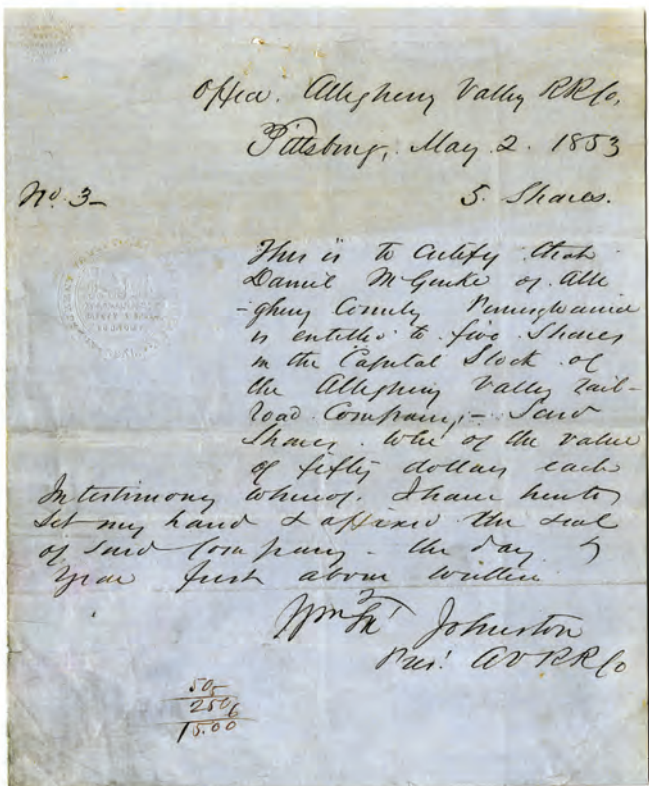 Office. Allegheny Valley RR Co,
Pittsburg, May 2. 1853
No. 3-
5. Shares.
This is to Certify that
Daniel McGurke of Alle
-gheny County Pennsylvania
is entitled to five Shares
in the Capital Stock of
the Allegheny Valley Rail-
Road Company,- Said
Shares of the value
of fifty dollars each
In testimony whereof. I have hereto
Set my hand & affixed the seal
of Said Company - the day &
year first above written
Wm F. Johnston
Pres! A V R R Co
50
250
6
15.00